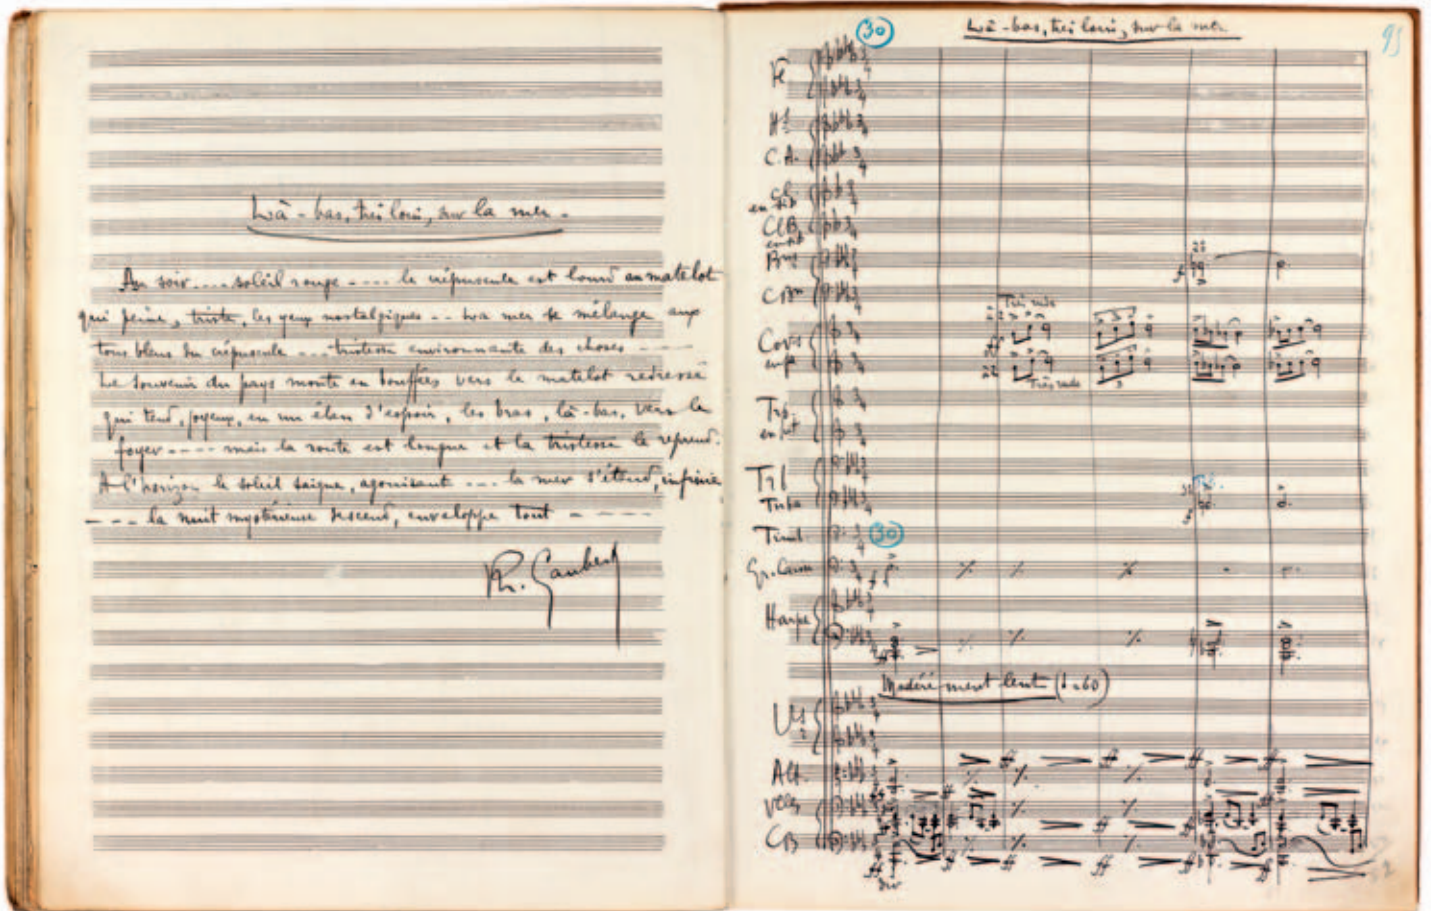 Là-bas, très loin, sur la mer.
Au soir .... soleil rouge .... le crépuscule est lourd au matelot
qui peine, triste, les yeux nostalgiques .. La mer se mélange aux
tons bleus du crépuscule ... tristesse environnante des choses ....
Le souvenir du pays monte en bouffées vers le matelot redressé
qui tend, joyeux, en un élan d'espoir, les bras, là-bas, vers le
foyer .... mais la route est longue et la tristesse le reprend.
A l'horizon le soleil saigne, agonisant ... la mer s'étend, infinie
.... la nuit mystérieuse descend, enveloppe tout ....
Ph. Gaubert
30
Là-bas, très loin, sur la mer
95
Fl
Htb
C.A.
Cl.
en sib
ClB
en sib
Bns
CBn
Très rude
Cors
en fa
Très rude
Trp.
en ut
Trb
Tuba
Timb.
30
Gr. Caisse
Harpe
Modérément lent (♩=60)
Vns
Alt.
Vclles
CB
div